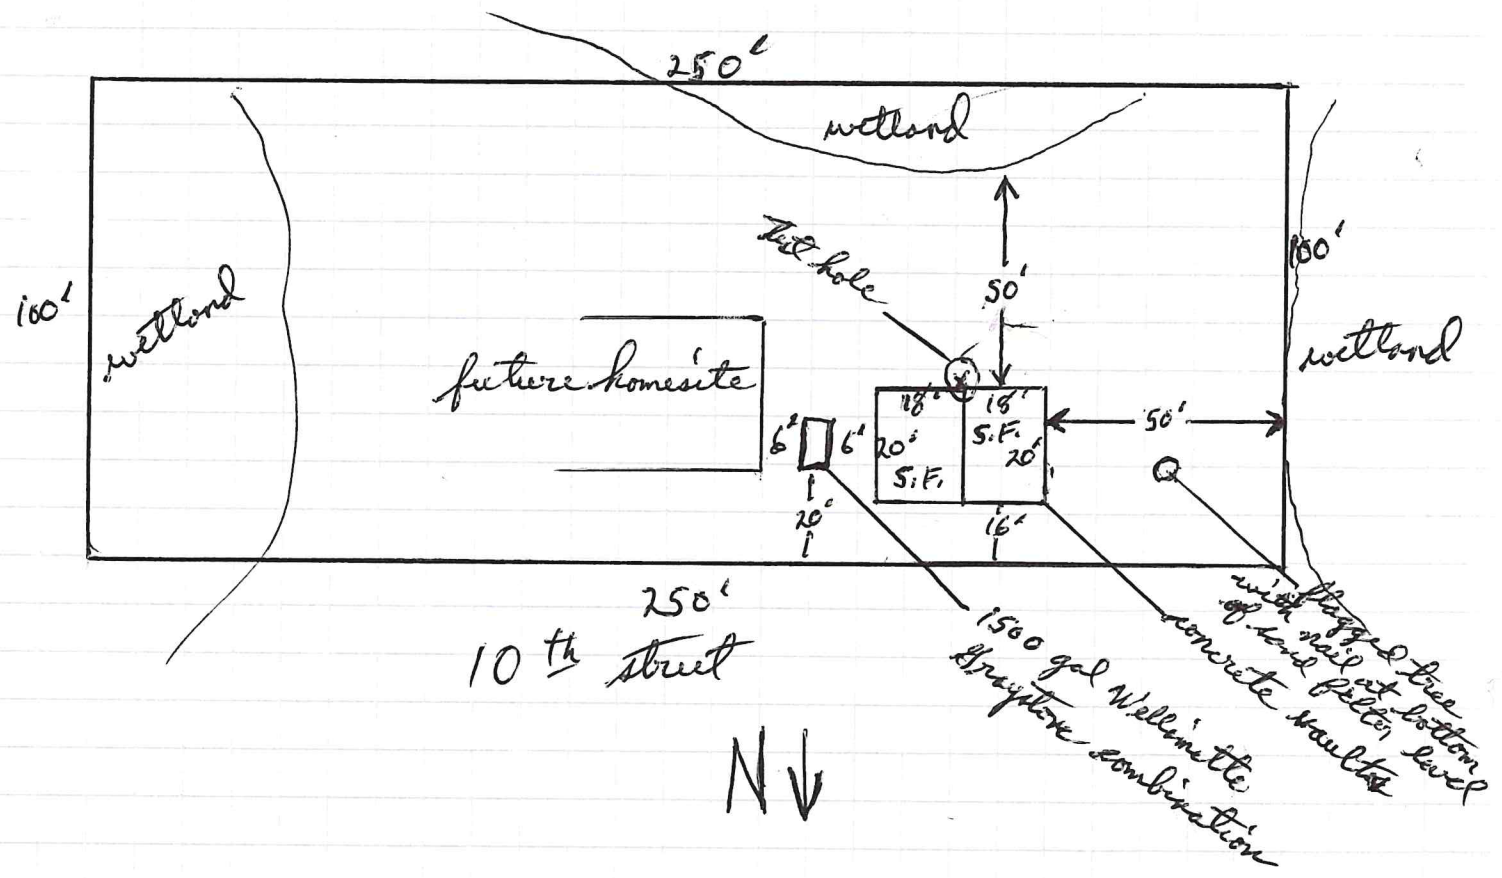 250'
wetland
test hole
100'
50'
100'
wetland
wetland
future homesite
18'
18'
S.F.
50'
6'
6'
20'
20'
S.F.
20'
16'
250'
10th street
1500 gal Wellimette
Graystone combination
concrete vaults
flagged tree
with nail at bottom
of sand filter level
N